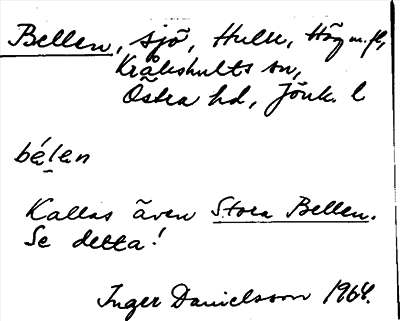 Bellen, sjö, Hult, Hög m. fl,
Kråkshults sn,
Östra hd, Jönk. l
bélen
Kallas även Stora Bellen.
Se detta!
Inger Danielsson 1964.